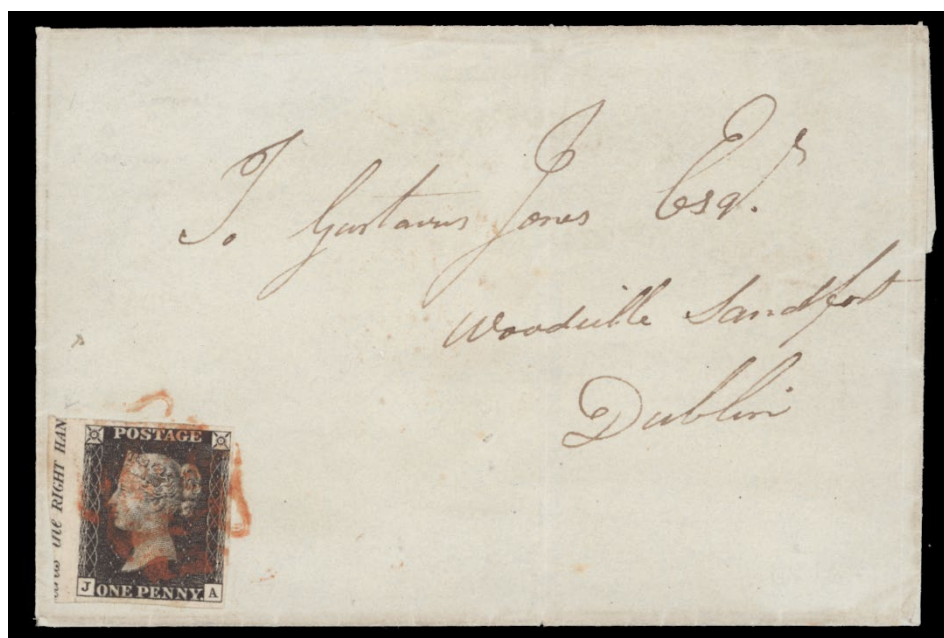 To Gustavus Jones Esqr.
Woodville Sandford
Dublin
the RIGHT HAN
POSTAGE
J ONE PENNY. A